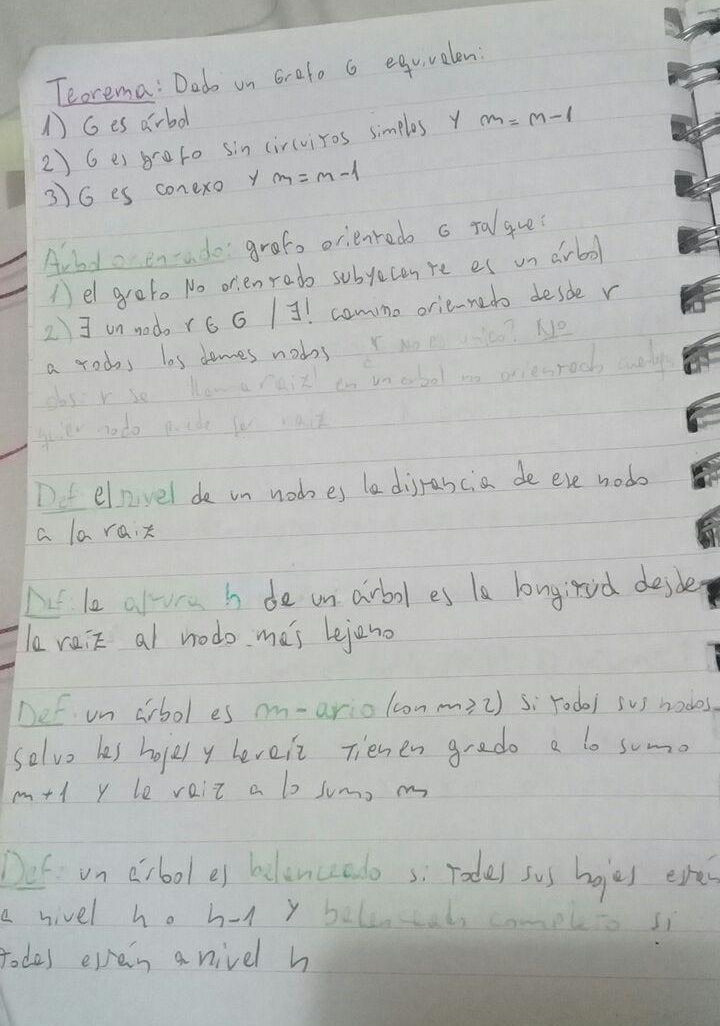 Teorema: Dado un Grafo G equivalen:
1) G es árbol
2) G es grafo sin circuitos simples y m = n-1
3) G es conexo y m = n-1
Árbol orientado: grafo orientado G tal que:
1) el grafo No orientado subyacente es un árbol
2) ∃ un nodo r ∈ G / ∃! camino orientado desde r
a todos los demas nodos r no es unico? No
obs: r se llama raiz en un arbol no orientado cual
quier nodo puede ser raiz
Def el nivel de un nodo es la distancia de ese nodo
a la raiz
Def: la altura h de un árbol es la longitud desde
la raiz al nodo más lejano
Def un árbol es m-ario (con m≥2) si todos sus nodos
salvo las hojas y la raiz tienen grado a lo sumo
m+1 y la raiz a lo sumo m
Def: un árbol es balanceado si todas sus hojas están
a nivel h o h-1 y balanceado completo si
todas están a nivel h